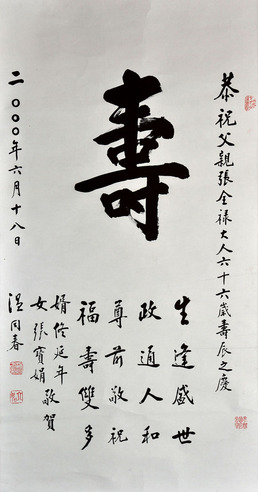 恭祝父親張全祿大人六十六歲壽辰之慶
壽
生逢盛世
政通人和
尊前敬祝
福壽雙多
婿佟延年
女張寶娟敬賀
二〇〇〇年六月十八日
溫同春